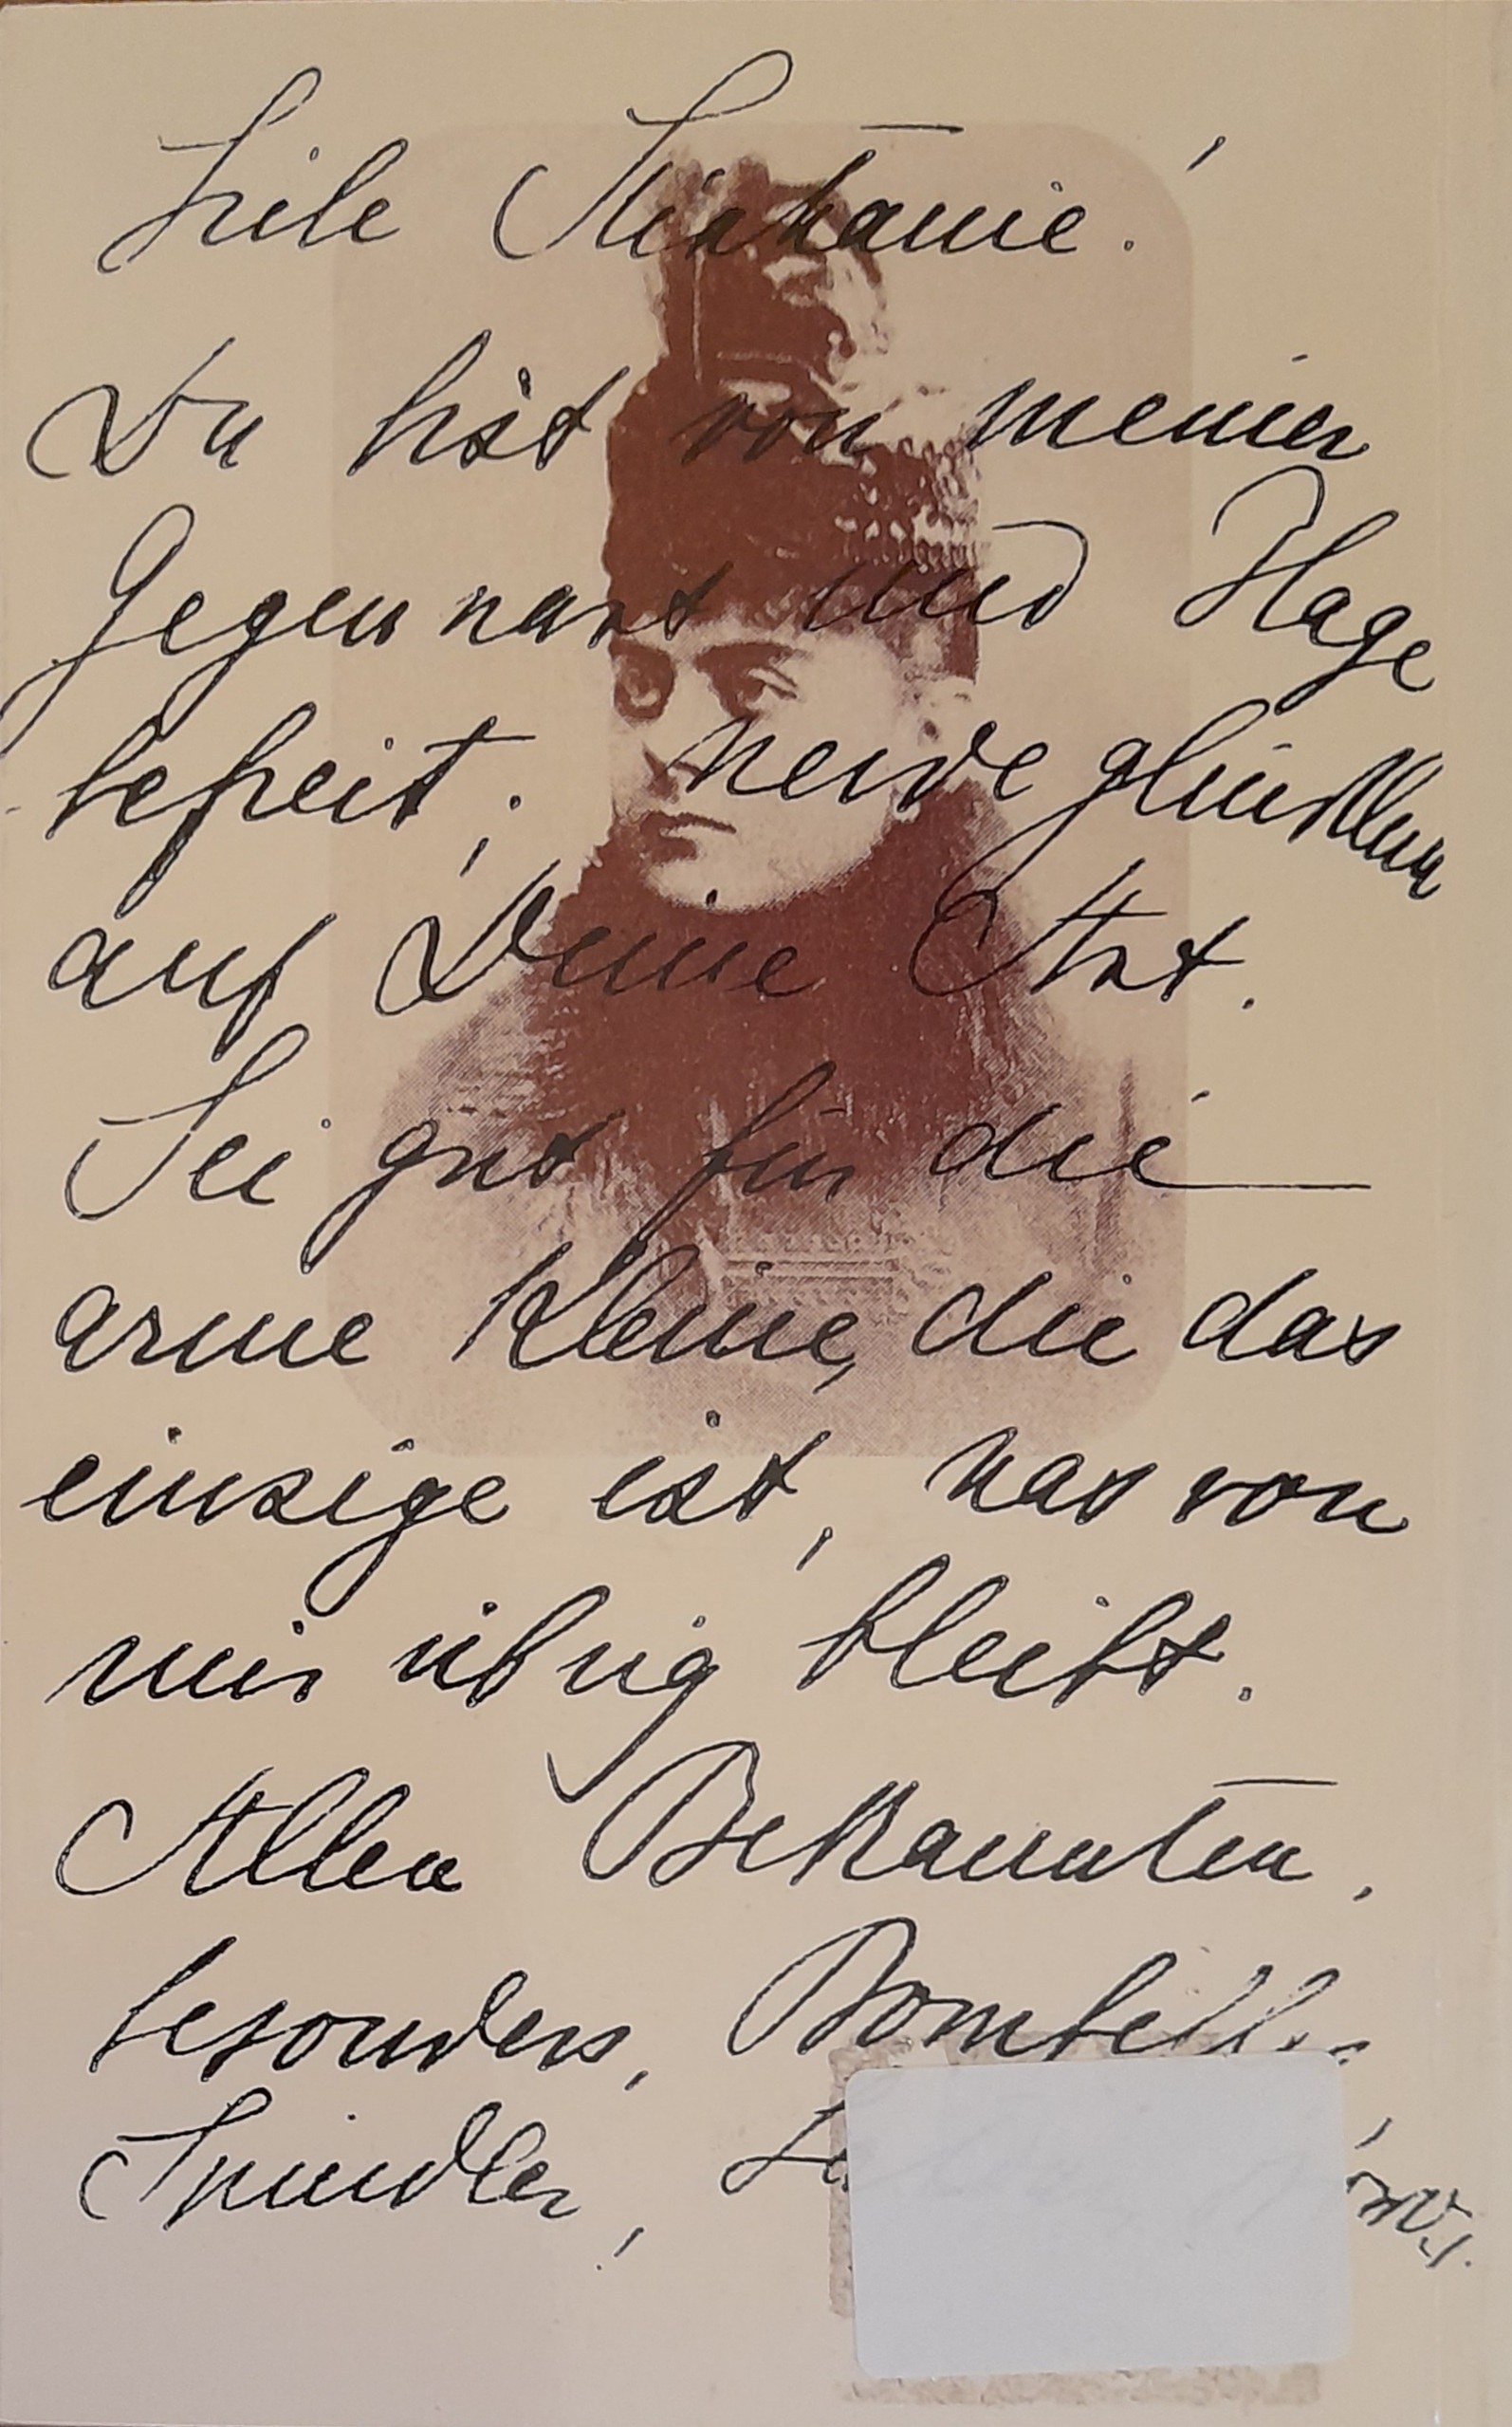 Liebe Stephanie!
Du bist von meiner
Gegenwart und Plage
befreit; werde glücklich
auf Deine Art.
Sei gut für die
arme Kleine, die das
einzige ist, was von
mir übrig bleibt.
Allen Bekannten,
besonders, Bombelles
Spindler,